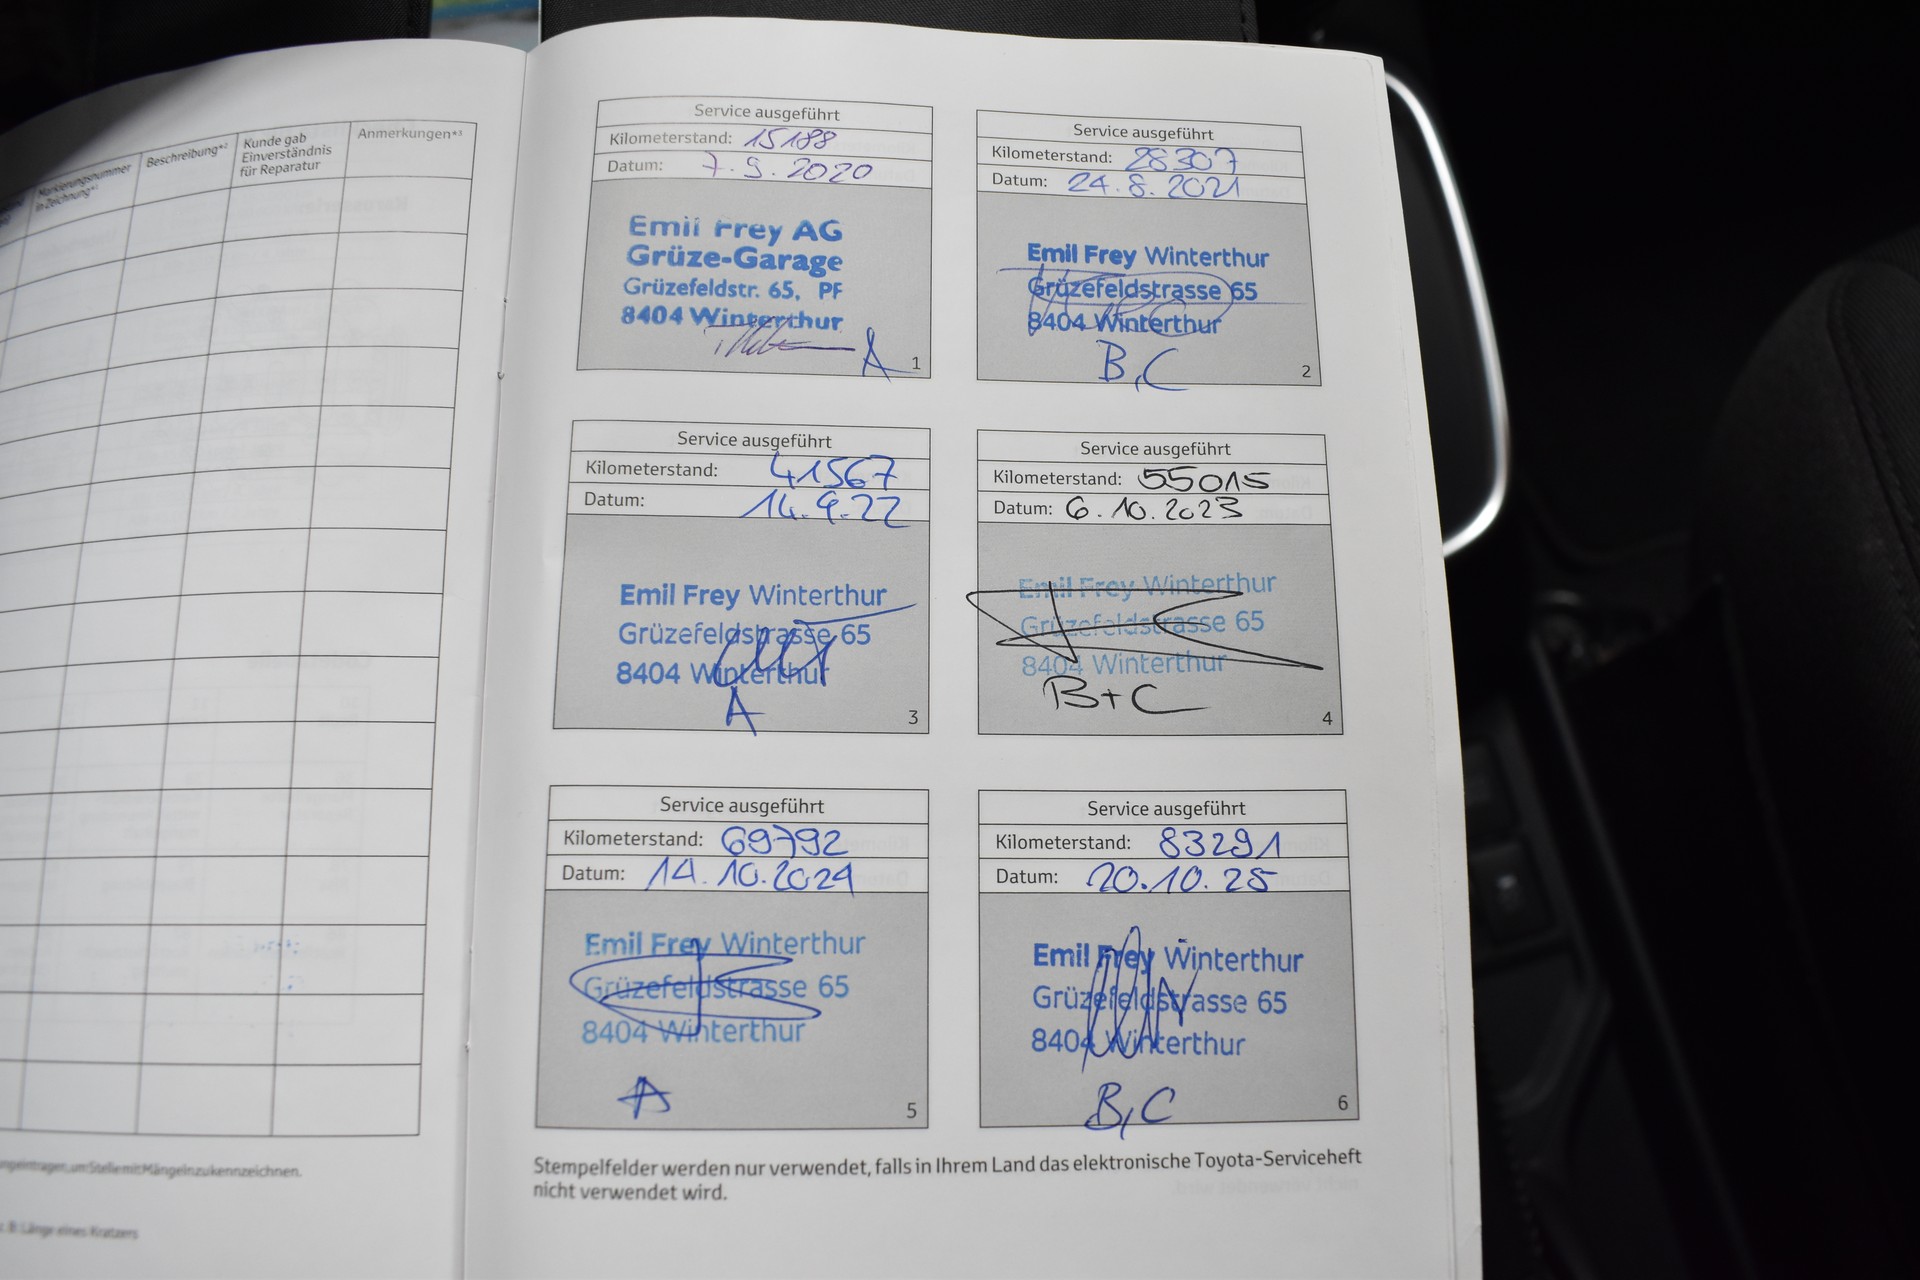 Markierungsnummer
in Zeichnung*¹
Beschreibung*²
Kunde gab
Einverständnis
für Reparatur
Anmerkungen*³
um Stelle mit Mängeln zu kennzeichnen.
B: Länge eines Kratzers
Service ausgeführt
Kilometerstand: 15188
Datum: 7.9.2020
Emil Frey AG
Grüze-Garage
Grüzefeldstr. 65, PF
8404 Winterthur
A
1
Service ausgeführt
Kilometerstand: 28307
Datum: 24.8.2021
Emil Frey Winterthur
Grüzefeldstrasse 65
8404 Winterthur
B,C
2
Service ausgeführt
Kilometerstand: 41567
Datum: 14.9.22
Emil Frey Winterthur
Grüzefeldstrasse 65
8404 Winterthur
A
3
Service ausgeführt
Kilometerstand: 55015
Datum: 6.10.2023
Emil Frey Winterthur
Grüzefeldstrasse 65
8404 Winterthur
B+C
4
Service ausgeführt
Kilometerstand: 69792
Datum: 14.10.2024
Emil Frey Winterthur
Grüzefeldstrasse 65
8404 Winterthur
A
5
Service ausgeführt
Kilometerstand: 83291
Datum: 20.10.25
Emil Frey Winterthur
Grüzefeldstrasse 65
8404 Winterthur
B,C
6
Stempelfelder werden nur verwendet, falls in Ihrem Land das elektronische Toyota-Serviceheft
nicht verwendet wird.